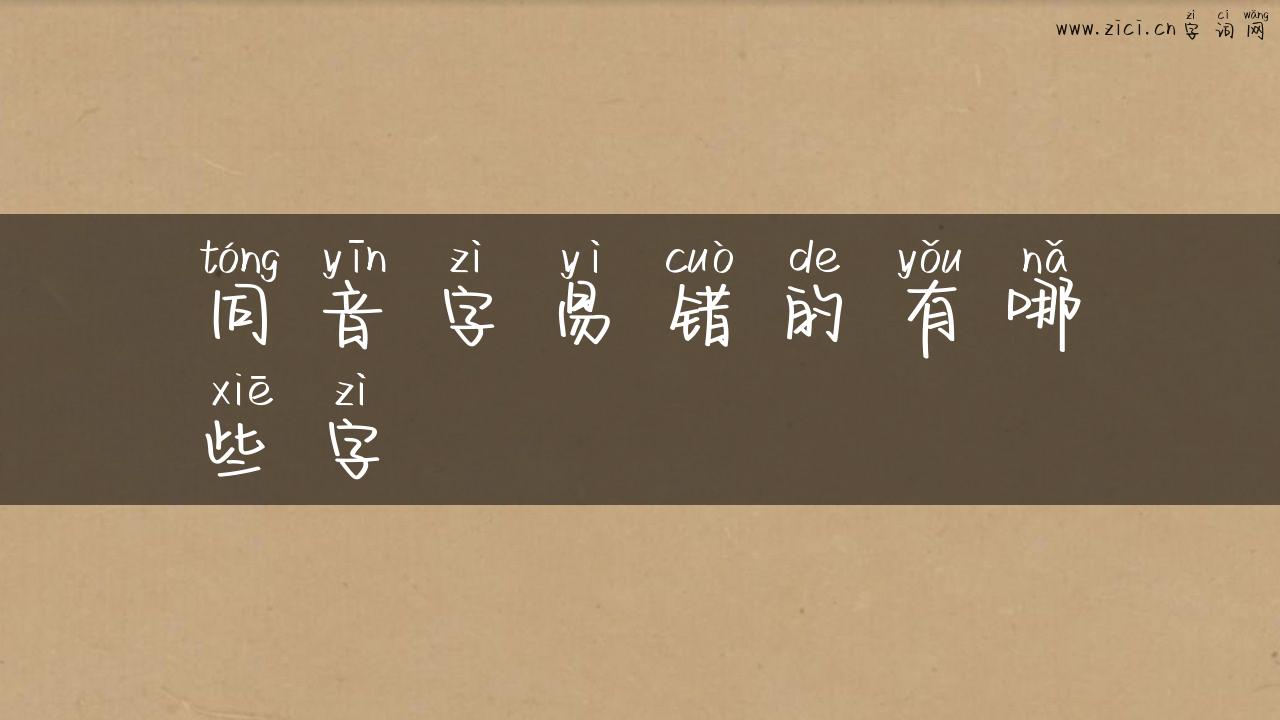 zì cí wǎng
www.zici.cn 字词网
tóng yīn zì yì cuò de yǒu nǎ
同音字易错的有哪
xiē zì
些字